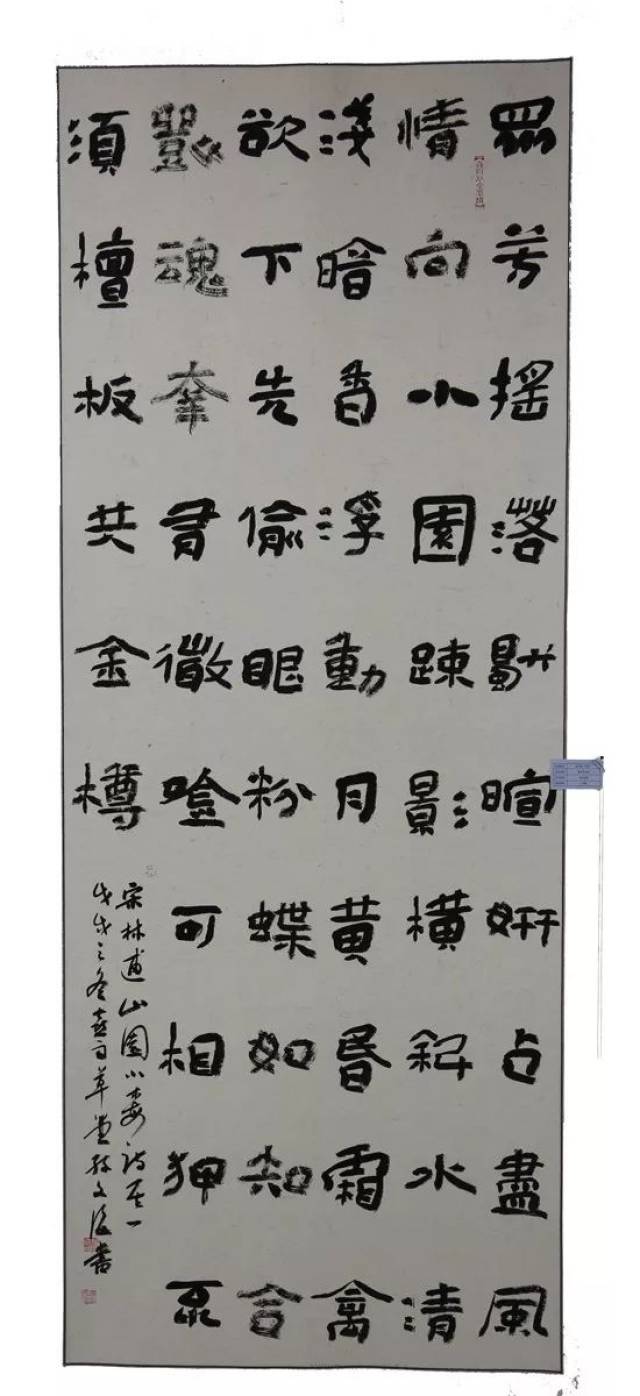 眾芳搖落獨暄妍占盡風
情向小園疎影橫斜水清
淺暗香浮動月黃昏霜禽
欲下先偷眼粉蝶如知合
斷魂幸有微吟可相狎不
須檀板共金樽
宋林逋山園小梅詩其一
戊戌之冬草堂文書